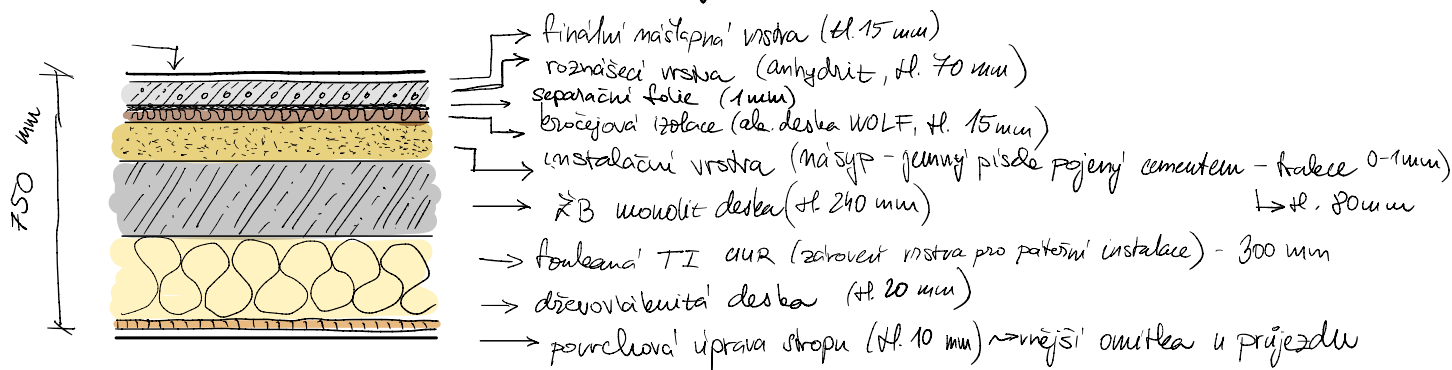 750 mm
finální nášlapná vrstva (tl. 15 mm)
roznášecí vrstva (anhydrit, tl. 70 mm)
separační folie (1mm)
kročejová izolace (ak. deska WOLF, tl. 15mm)
instalační vrstva (násyp - jemný písek pojený cementem - frakce 0-1mm)
tl. 80mm
ŽB monolit deska (tl. 240 mm)
foukaná TI CIUR (zároveň vrstva pro páteřní instalace) - 300 mm
dřevovláknitá deska (tl. 20 mm)
povrchová úprava stropu (tl. 10 mm) vnější omítka u průjezdu